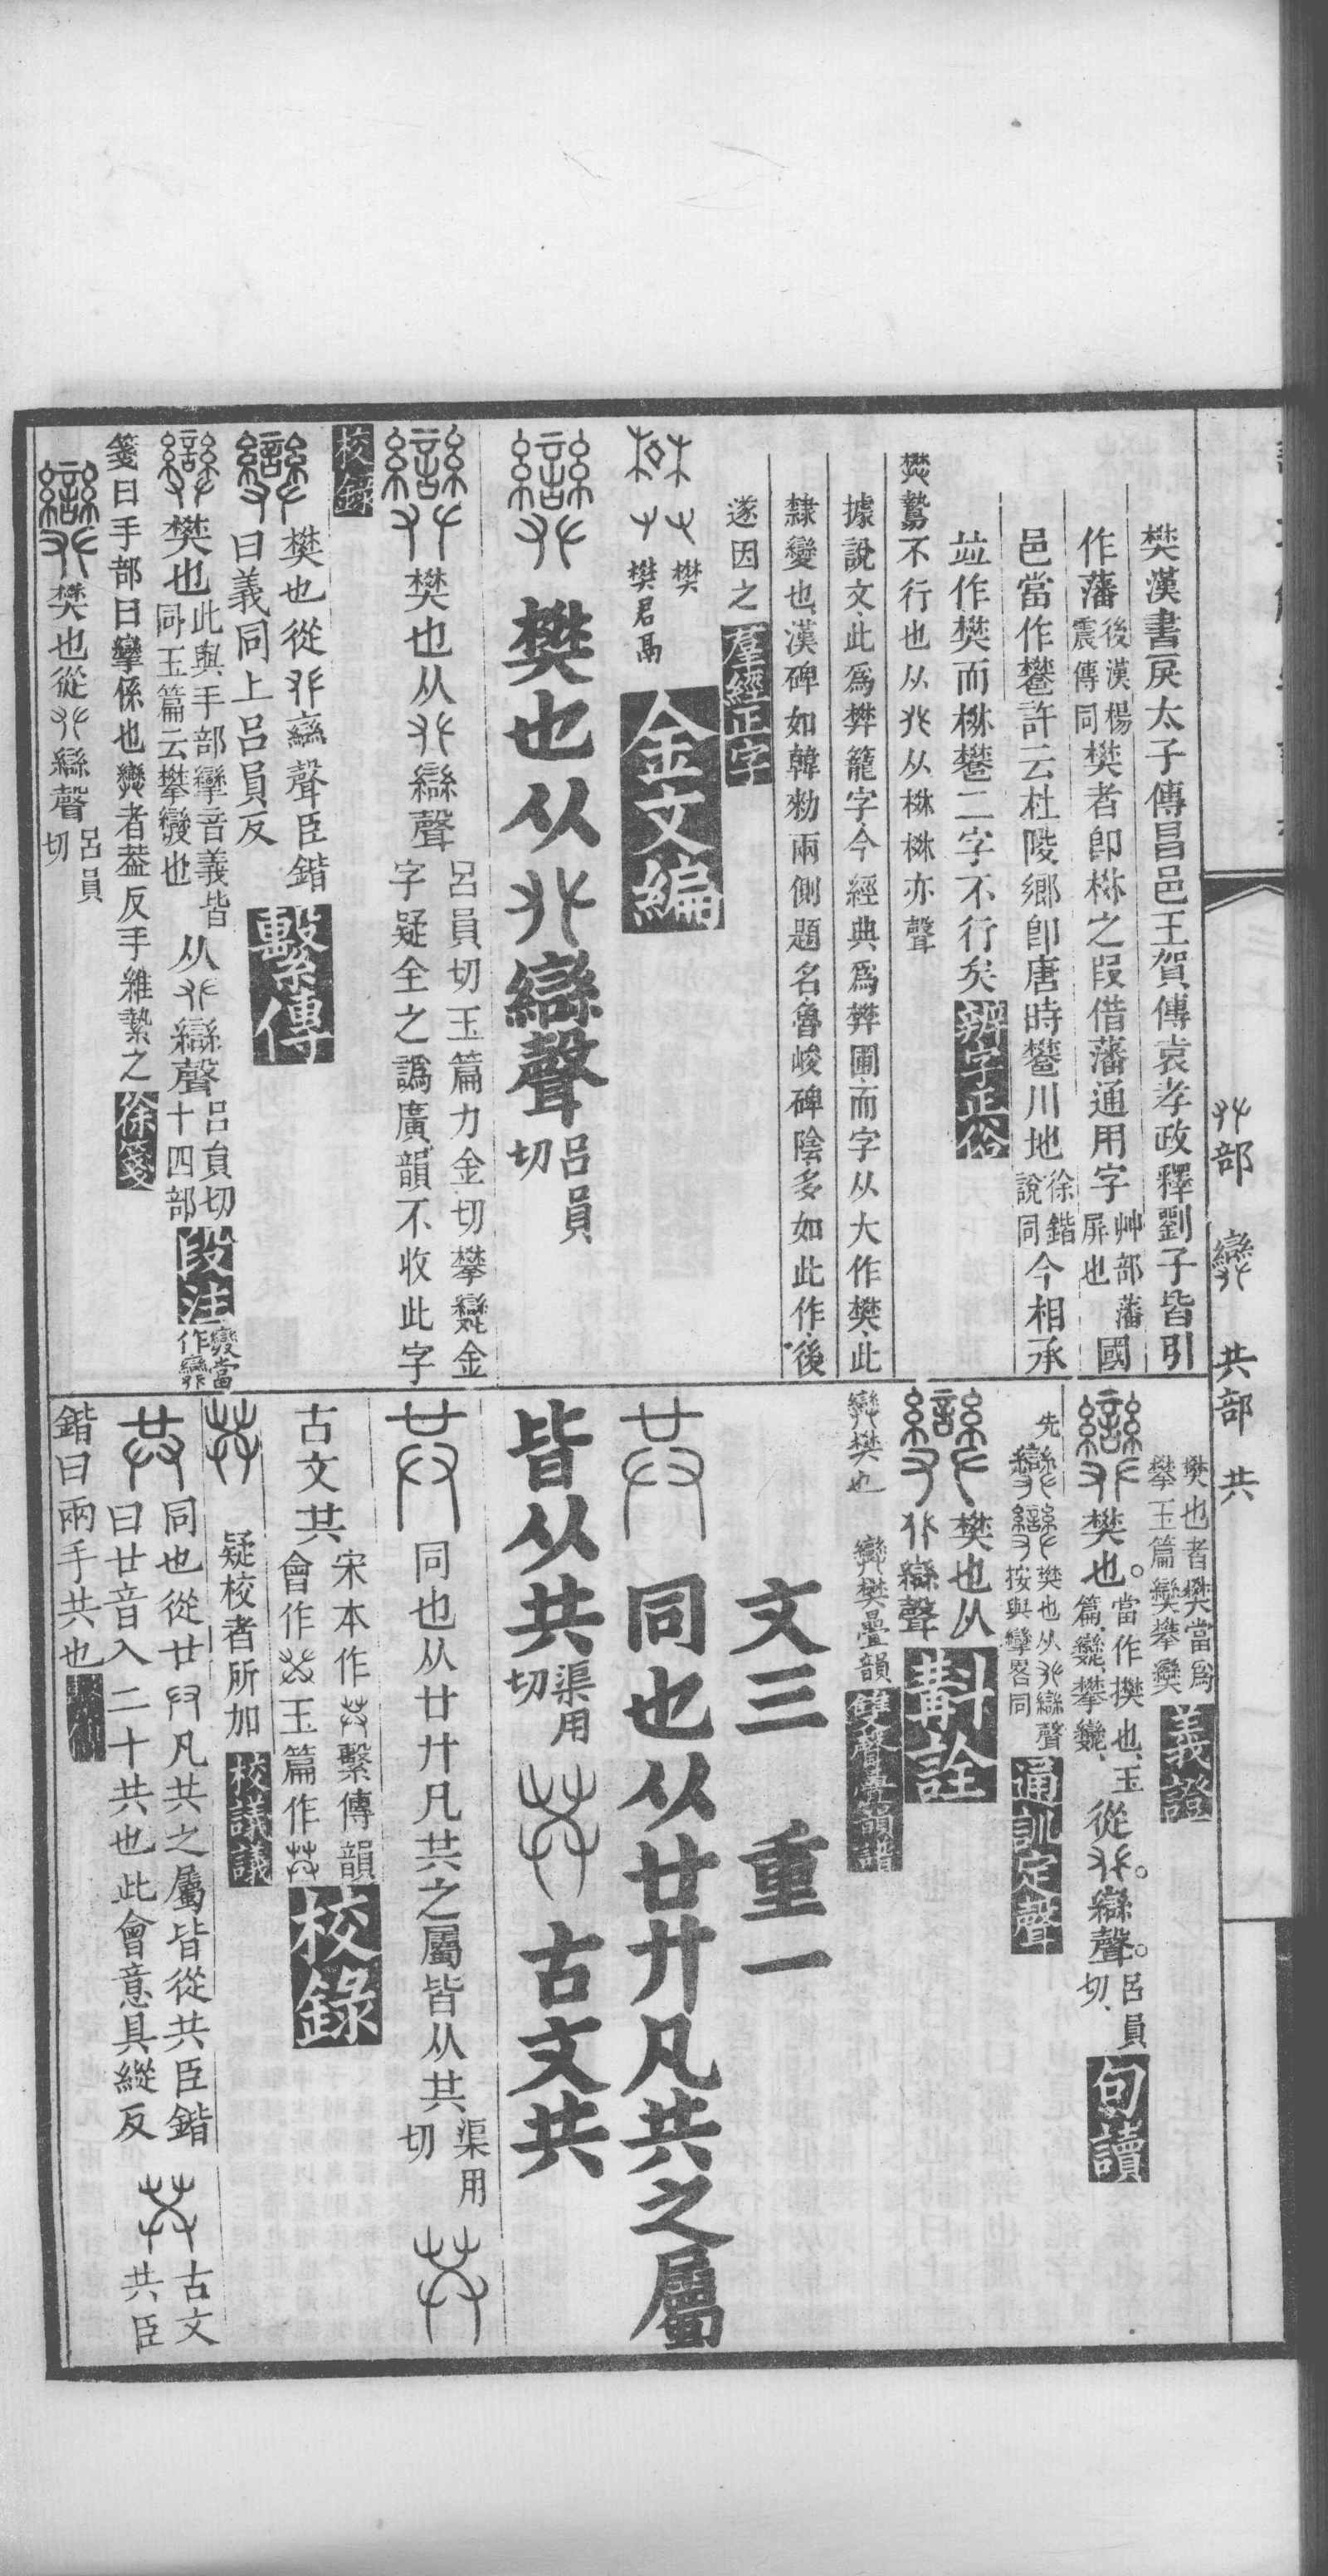 𠬜部　共部　共
樊漢書戾太子傳昌邑王賀傳袁孝政釋劉子皆引
作藩後漢楊震傳同樊者卽棥之叚借藩通用字艸部藩屏也國
邑當作鄨許云杜陵鄉卽唐時樊川地徐鍇說同今相承
竝作樊而棥二字不行矣辨字正俗
樊鷙不行也从𠬜从棥棥亦聲
據說文此爲樊籠字今經典爲樊圃而字从大作樊此
隸變也漢碑如韓勑兩側題名魯峻碑陰多如此作後
遂因之羣經正字
樊樊君鬲金文編
樊也从𠬜䜌聲呂員切
樊也从𠬜䜌聲呂員切玉篇力金切攀也金
字疑全之譌廣韻不收此字
校錄
樊也從𠬜䜌聲臣鍇
曰義同上呂員反繫傳
樊也此與手部攣音義皆同玉篇云攀也从𠬜䜌聲呂員切十四部段注
箋曰手部曰攣係也者葢反手維縶之徐箋
樊也從𠬜䜌聲呂員切
樊也者樊當爲攀玉篇攀義證
樊也當作㩯也玉篇攀從𠬜䜌聲呂員切句讀
樊也从𠬜䜌聲按與攣畧同通訓定聲
樊也从𠬜䜌聲斠詮
樊也　樊疊韻雙聲疊韻譜
文三　重一
同也从廿廾凡共之屬
皆从共渠用切　古文共
同也从廿廾凡共之屬皆从共渠用切
古文共宋本作繫傳韻會作玉篇作校錄
疑校者所加校議議
同也從廿廾凡共之屬皆從共臣鍇
曰廿音入二十共也此會意具縱反　古文共臣
鍇曰兩手共也繫傳